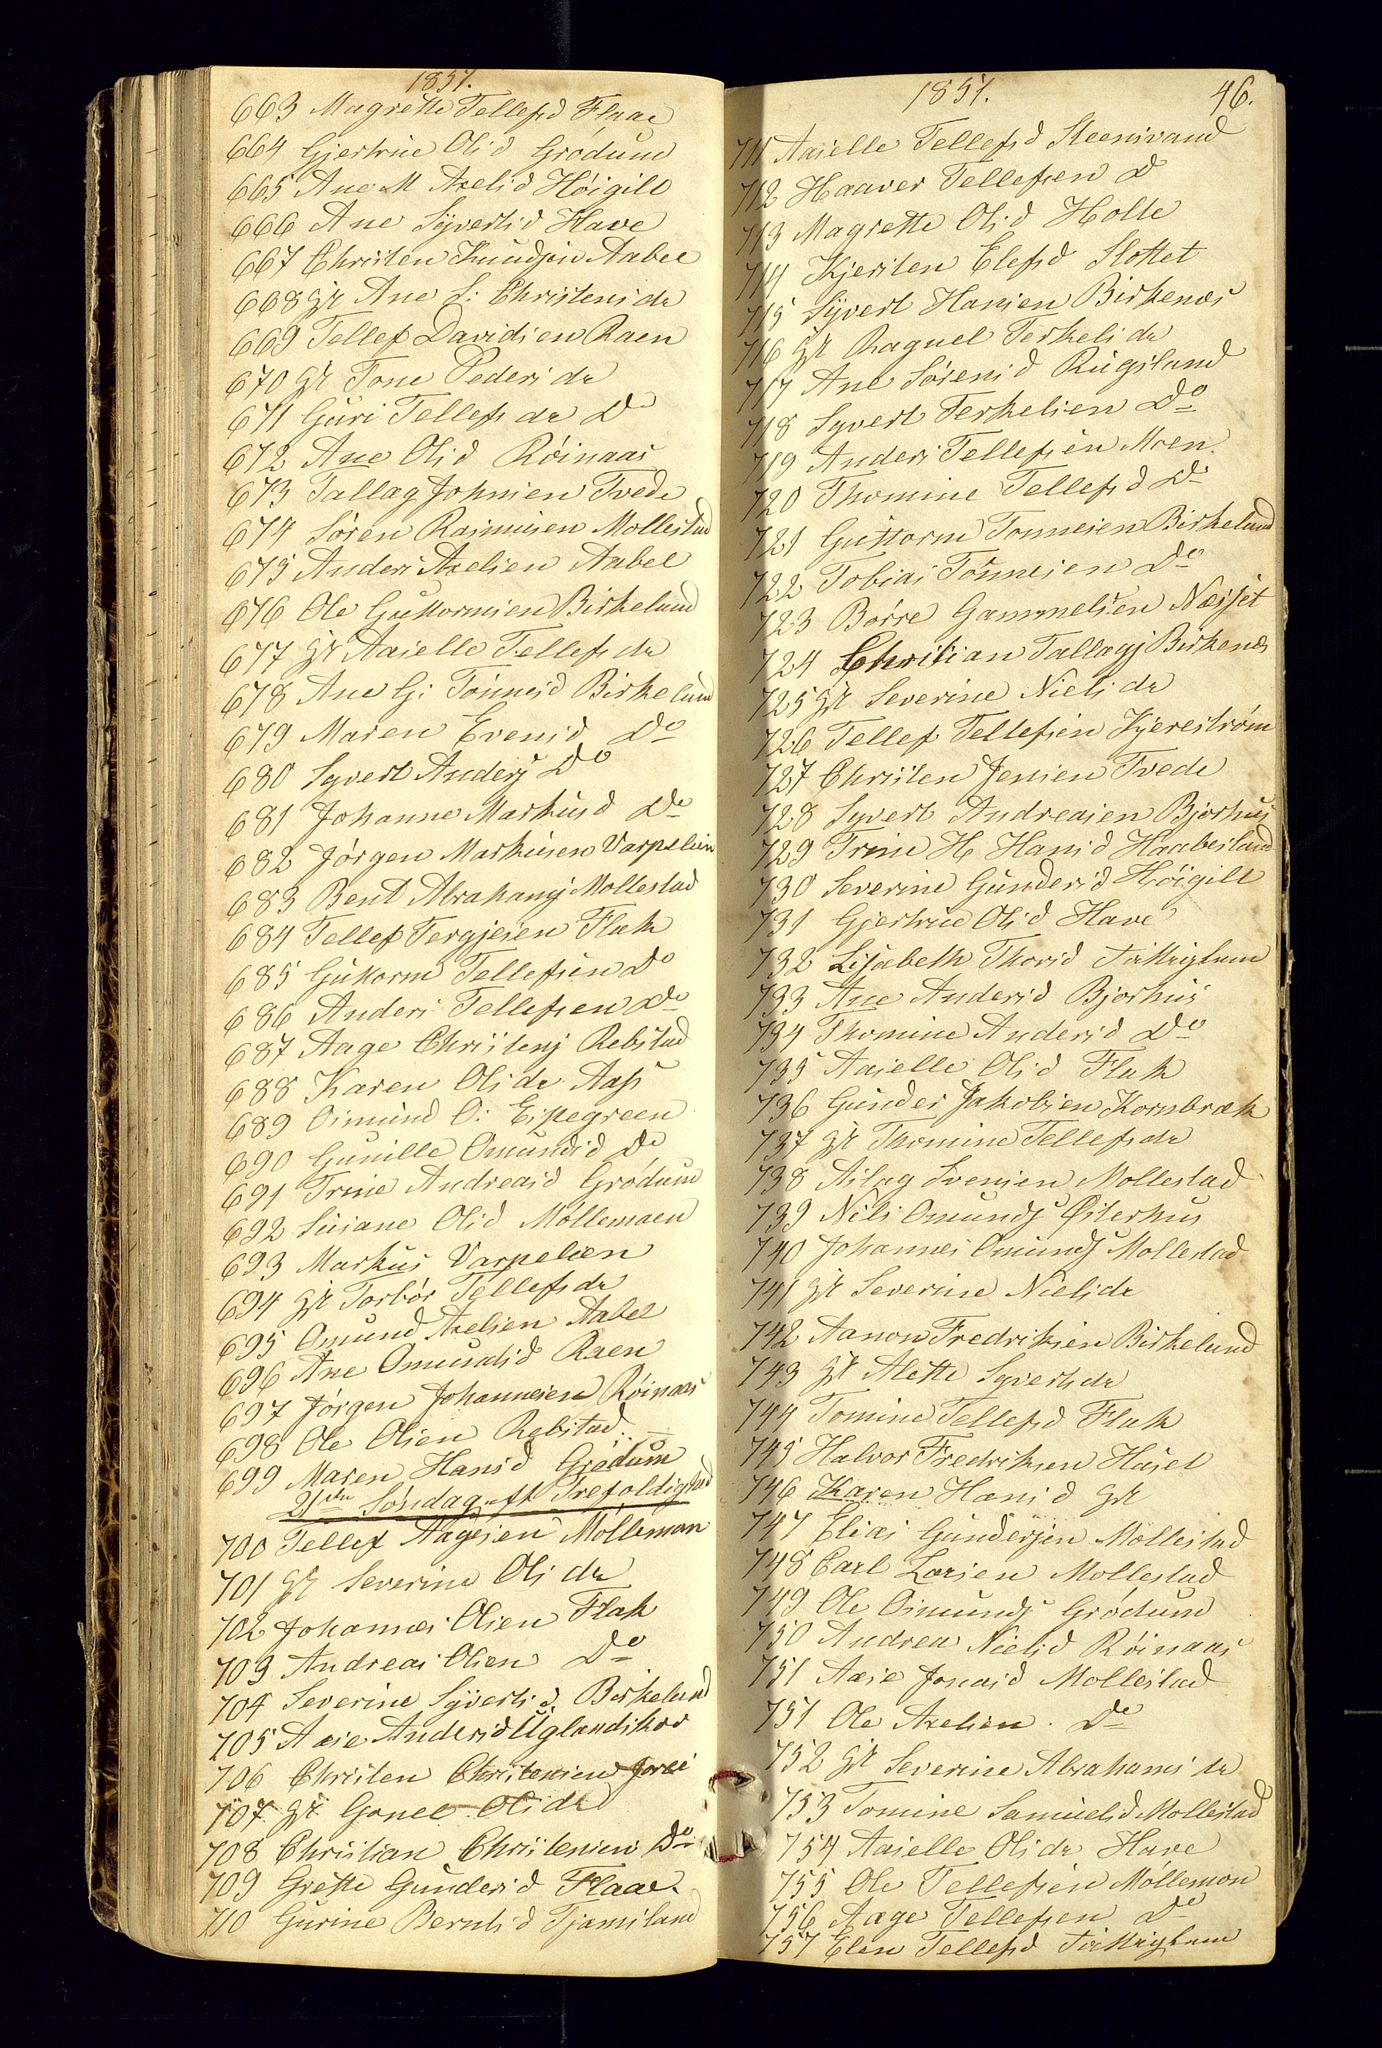 1851.
663 Magrethe Tellefsd Flaae
664 Gjertrue Olsd Grødum
665 Ane M Axelsd Høigilt
666 Ane Syvertsd Have
667 Christen Knudsen Aabel
668 gr Ane S: Christensdr
669 Tellef Davidsen Raen
670 gr Tone Pedersdr
671 Guri Tellefsdr Do
672 Ane Olsd Røinaas
673 Tallag Johnsen Tvede
674 Søren Rasmusen Mollestad
675 Anders Axelsen Aabel
676 Ole Guttormsen Birkeland
677 gr Aasielle Tellefsdr
678 Ane G: Tønnesd Birkeland
679 Maren Evensd Do
680 Syvert Anders Do
681 Johanne Markusd Do
682 Jørgen Markusen Varpelien
683 Bent Abrahams Mollestad
684 Tellef Tergjesen Flak
685 Guttorm Tellefsen Do
686 Anders Tellefsen Do
687 Aage Christens Rebstad
688 Karen Olsdr Aas
689 Osmund O: Espegreen
690 Gunille Omundsd Do
691 Trine Andreasd Grødum
692 Susane Olsd Møllemoen
693 Markus Varpelien
694 gr Torbør Tellefsdr
695 Omund Axelsen Aabel
696 Ane Omundsd Raen
697 Jørgen Johannesen Røinaas
698 Ole Olsen Rebstad
699 Maren Hansd Grødum
21de Søndag eft Trefoldighed
700 Tellef Aagesen Møllemon
701 gr Severine Olsdr
702 Johannes Olsen Flak
703 Andreas Olsen Do
704 Severine Syvertsd. Birkeland
705 Aase Andersd Uglandskov
706 Christen Christensen
707 gr Gonel Olsdr
708 Christian Christensen Do
709 Grethe Gundersd Flaae
710 Gurine Berntsd Tjamsland
1851. 46.
711 Aasielle Tellefsd Steensvand
712 Haaver Tellefsen Do
713 Magrethe Olsd Holte
714 Kjersten Elefsd Slottet
715 Syvert Hansen Birkenes
716 gr Raguel Terkelsdr
717 Ane Sørensd Rugsland
718 Syvert Terkelsen Do
719 Anders Tellefsen Moen
720 Thomine Tellefsd Do
721 Guttorm Tønnesen Birkeland
722 Tobias Tønnesen Do
723 Børre Gammelsen Næsset
724 Christian Tallags Birkenes
725 gr Severine Nielsdr
726 Tellef Tellefsen Kjerestrøm
727 Christen Jensen Tvede
728 Syvert Andreasen Bjorhus
729 Trine H Hansd Haabesland
730 Severine Gundersd Høigilt
731 Gjertrue Olsd Have
732 Lisabeth Thorsd
733 Ane Andersd Bjorhus
734 Thomine Andersd Do
735 Aasielle Olsd Flak
736 Gunder Jakobsen Kornbræk
737 gr Thomine Tellefsdr
738 Aslag Svensen Mollestad
739 Nils Omunds Østerhus
740 Johannes Omunds Mollestad
741 gr Severine Nielsdr
742 Aanon Fredriksen Birkeland
743 gr Alette Syvertsdr
744 Tomine Tellefsd Flak
745 Halvor Fredriksen Hasel
746 Karen Hansd gr
747 Elias Gundersen Mollestad
748 Carl Larsen Mollestad
749 Ole Osmunds Grødum
750 Andrea Nielsd Røinaas
751 Aasie Jonasd Mollestad
751 Ole Axelsen. Do
752 gr Severine Abrahamsdr
753 Tomine Samuelsd Mollestad
754 Aasielle Olsdr Have
755 Ole Tellefsen Møllemon
756 Aage Tellefsen Do
757 Elen Tellefsd